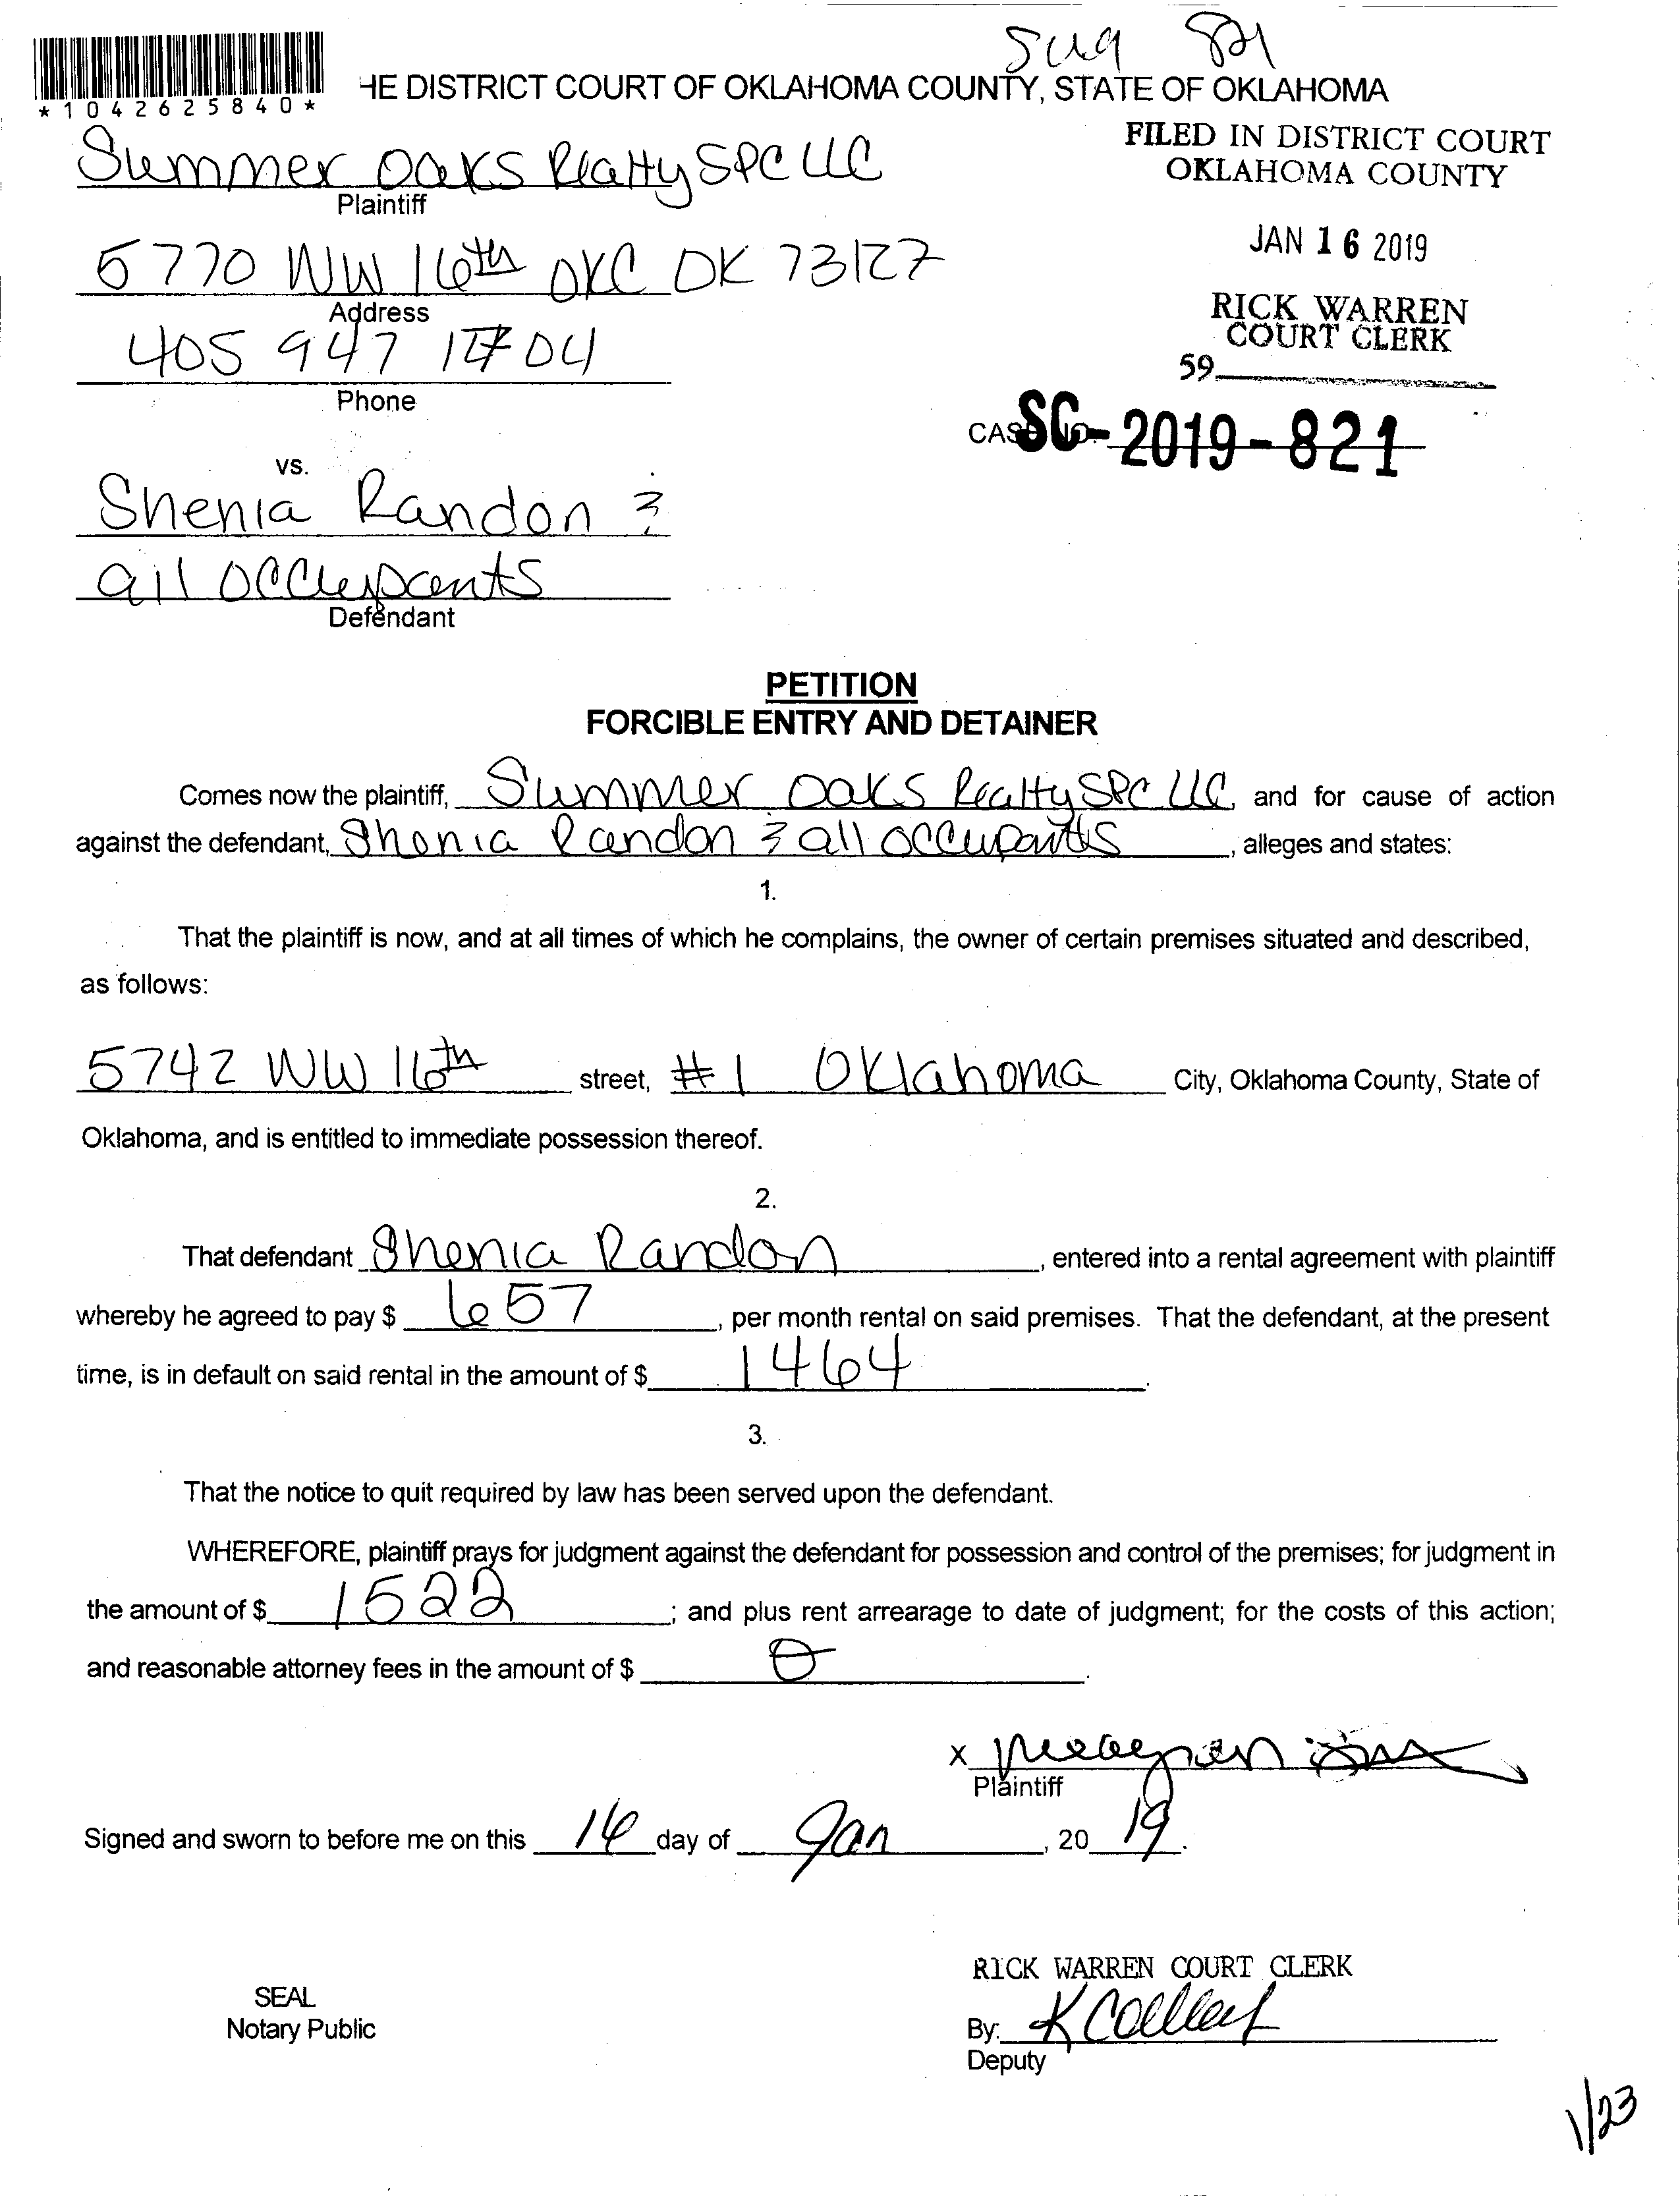 Sug 821
*1042625840*
HE DISTRICT COURT OF OKLAHOMA COUNTY, STATE OF OKLAHOMA
FILED IN DISTRICT COURT
OKLAHOMA COUNTY
Summer Oaks Realty SPC LLC
Plaintiff
JAN 16 2019
5770 NW 16th OKC OK 73127
Address
RICK WARREN
COURT CLERK
405 947 1704
59
Phone
CASE NO. SC-2019-821
vs.
Shenia Randon &
all occupants
Defendant
PETITION
FORCIBLE ENTRY AND DETAINER
Comes now the plaintiff, Summer Oaks Realty SPC LLC, and for cause of action
against the defendant, Shenia Randon & all occupants, alleges and states:
1.
That the plaintiff is now, and at all times of which he complains, the owner of certain premises situated and described,
as follows:
5742 NW 16th street, #1 Oklahoma City, Oklahoma County, State of
Oklahoma, and is entitled to immediate possession thereof.
2.
That defendant Shenia Randon, entered into a rental agreement with plaintiff
whereby he agreed to pay $ 657, per month rental on said premises. That the defendant, at the present
time, is in default on said rental in the amount of $ 1464.
3.
That the notice to quit required by law has been served upon the defendant.
WHEREFORE, plaintiff prays for judgment against the defendant for possession and control of the premises; for judgment in
the amount of $ 1522; and plus rent arrearage to date of judgment; for the costs of this action;
and reasonable attorney fees in the amount of $ 0.
X
Plaintiff
Signed and sworn to before me on this 16 day of Jan, 2019.
RICK WARREN COURT CLERK
SEAL
Notary Public
By:
Deputy
1/23